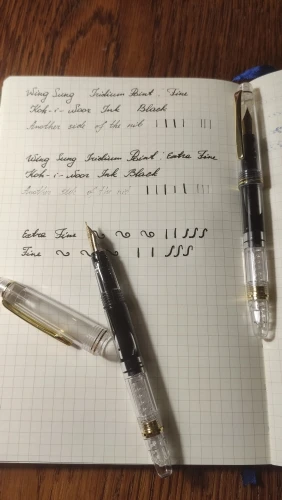 Wing Sung Iridium Point: Fine
Koh-i-Noor Ink Black
Another side of the nib
Wing Sung Iridium Point: Extra Fine
Koh-i-Noor Ink Black
Another side of the nib
Extra Fine
Fine